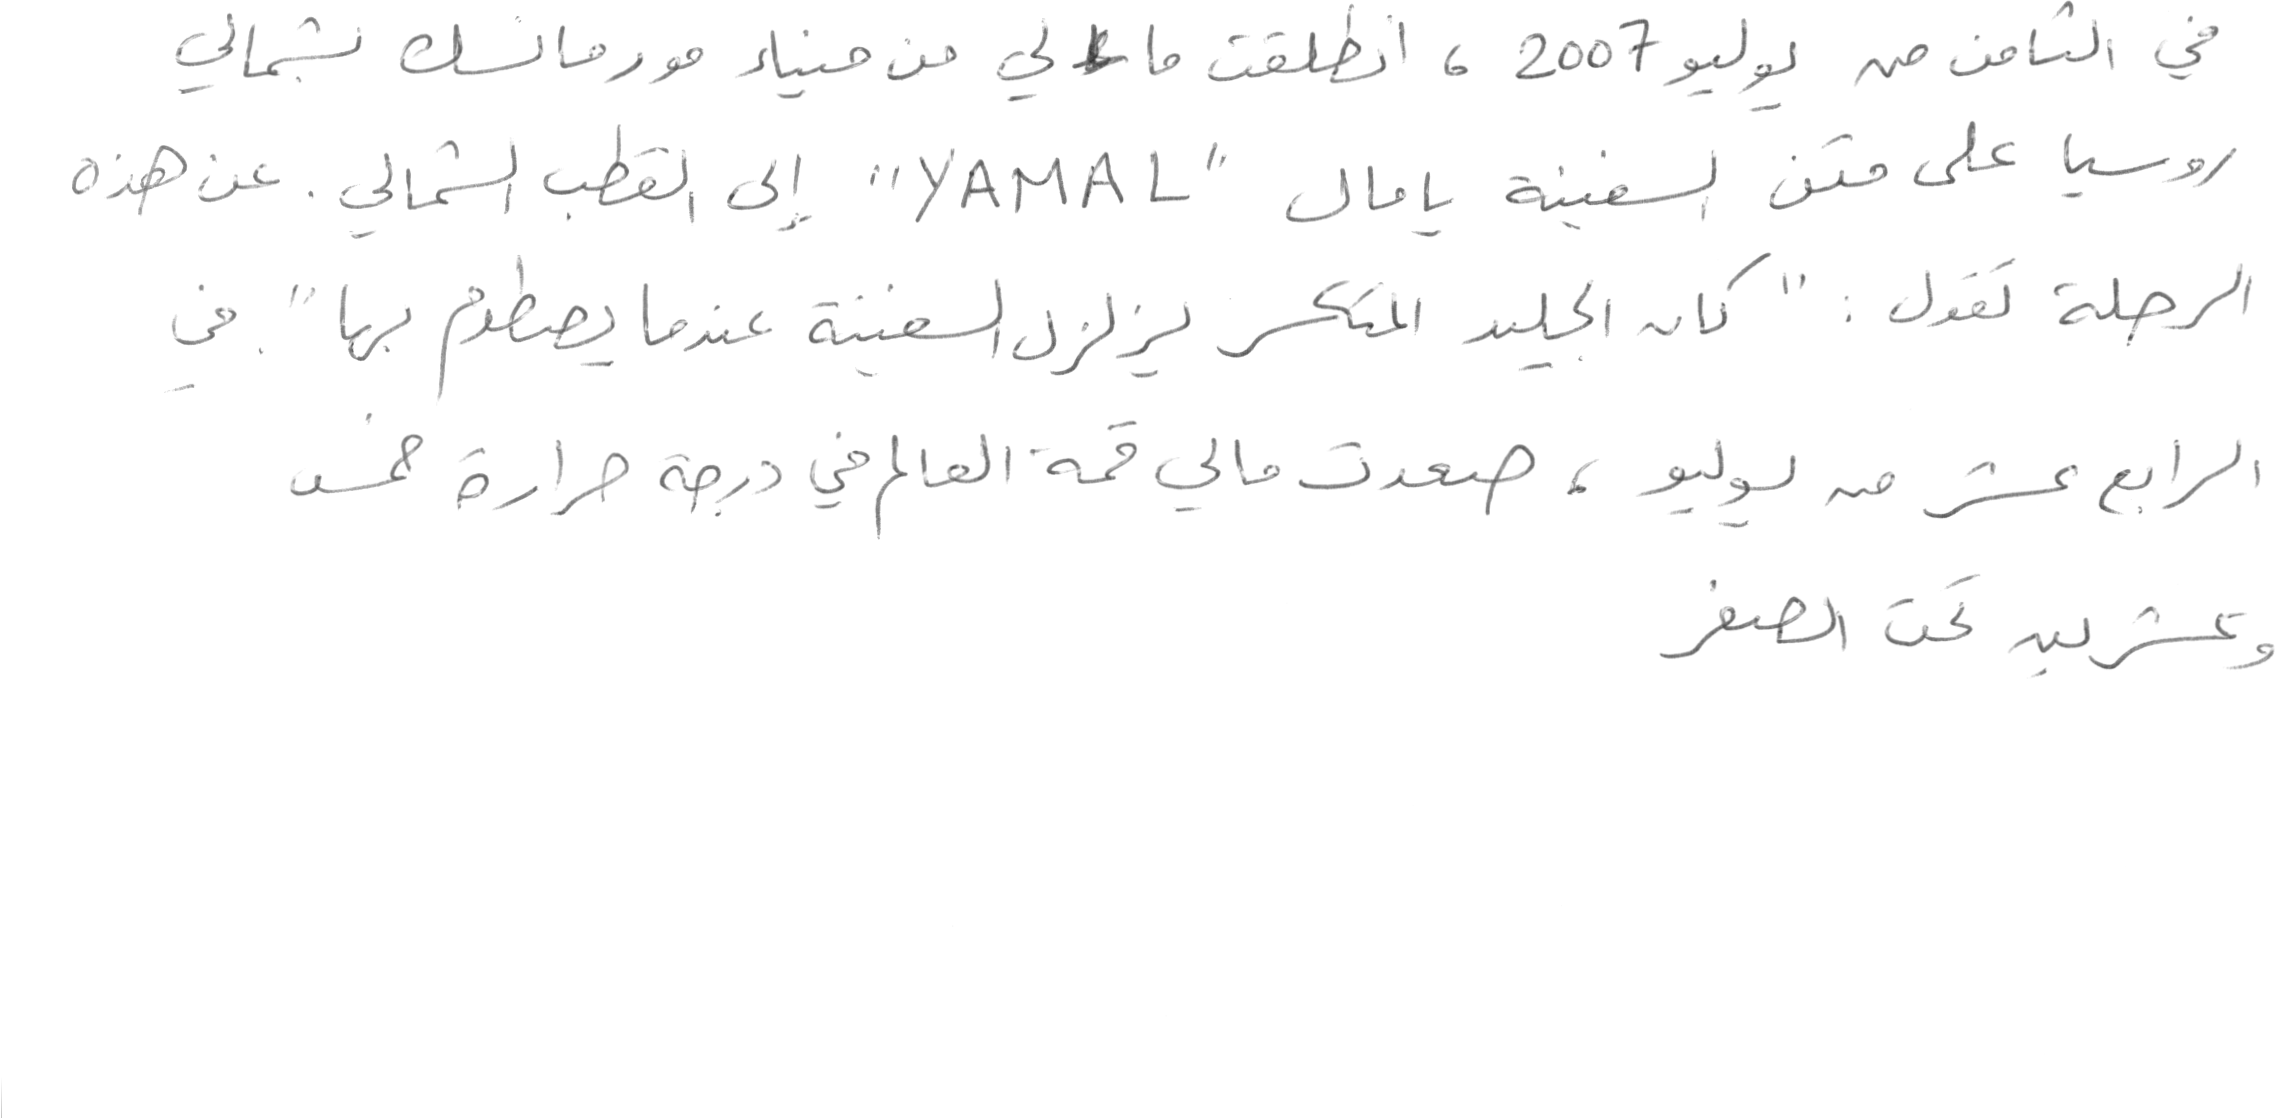 في الثامن من يوليو 2007 ، انطلقت مالي من ميناء مورمانسك بشمالي
روسيا على متن السفينة يامال "YAMAL" إلى القطب الشمالي . عن هذه
الرحلة تقول : " كان الجليد المتكسر يزلزل السفينة عندما يصطدم بها " . في
الرابع عشر من يوليو ، صعدت مالي قمة العالم في درجة حرارة خمس
وعشرين تحت الصفر